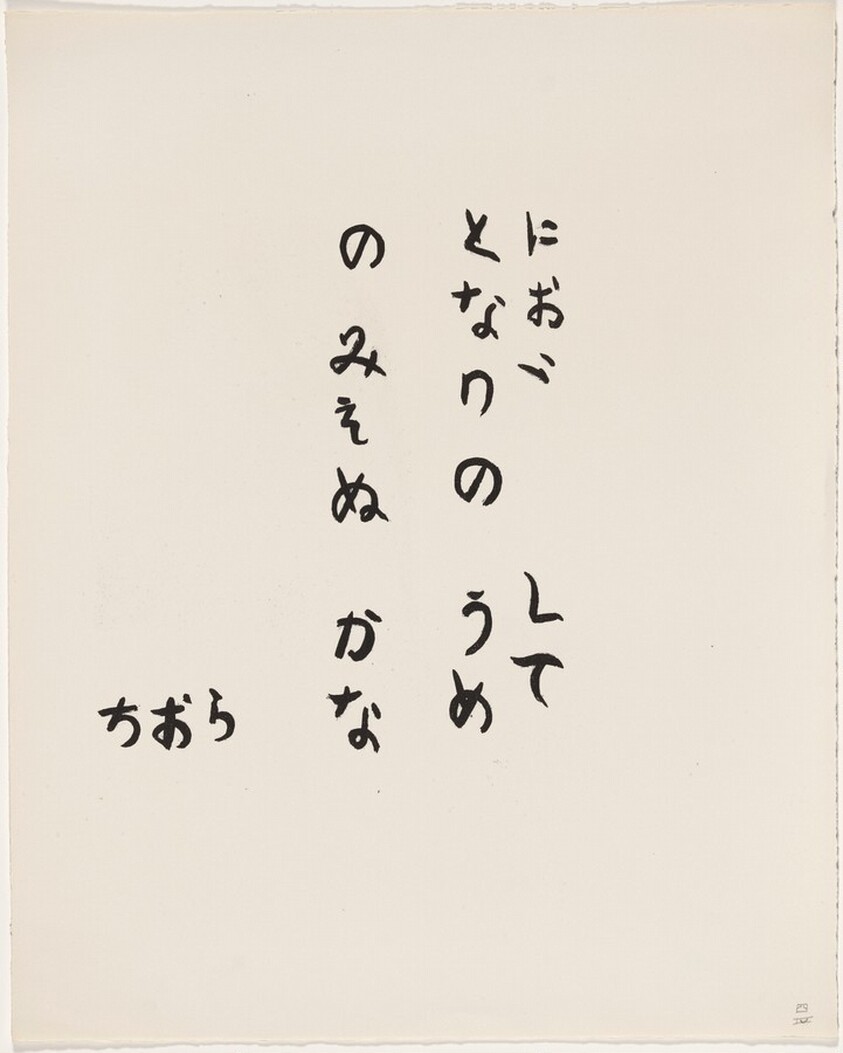 におゞ して
となりの うめ
の みえぬ かな
ちおら